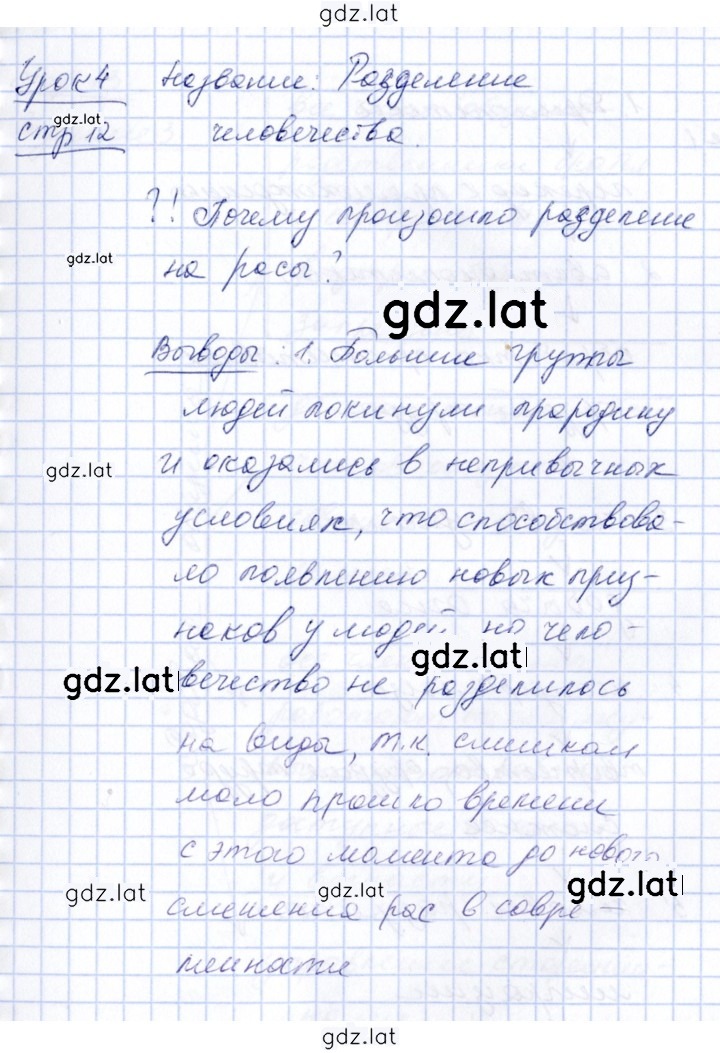 gdz.lat
Урок 4 Название: Разделение
gdz.lat
стр 12 человечества.
?! Почему произошло разделение
gdz.lat
на расы?
gdz.lat
Выводы: 1. Большие группы
людей покинули прародину
gdz.lat
и оказались в непривычных
условиях, что способствова-
ло появлению новых приз-
наков у людей но чело-
gdz.lat
gdz.lat
вечество не разделилось
на виды, т.к. слишком
мало прошло времени
с этого момента до нового
gdz.lat gdz.lat gdz.lat
смешения рас в совре-
менности
gdz.lat